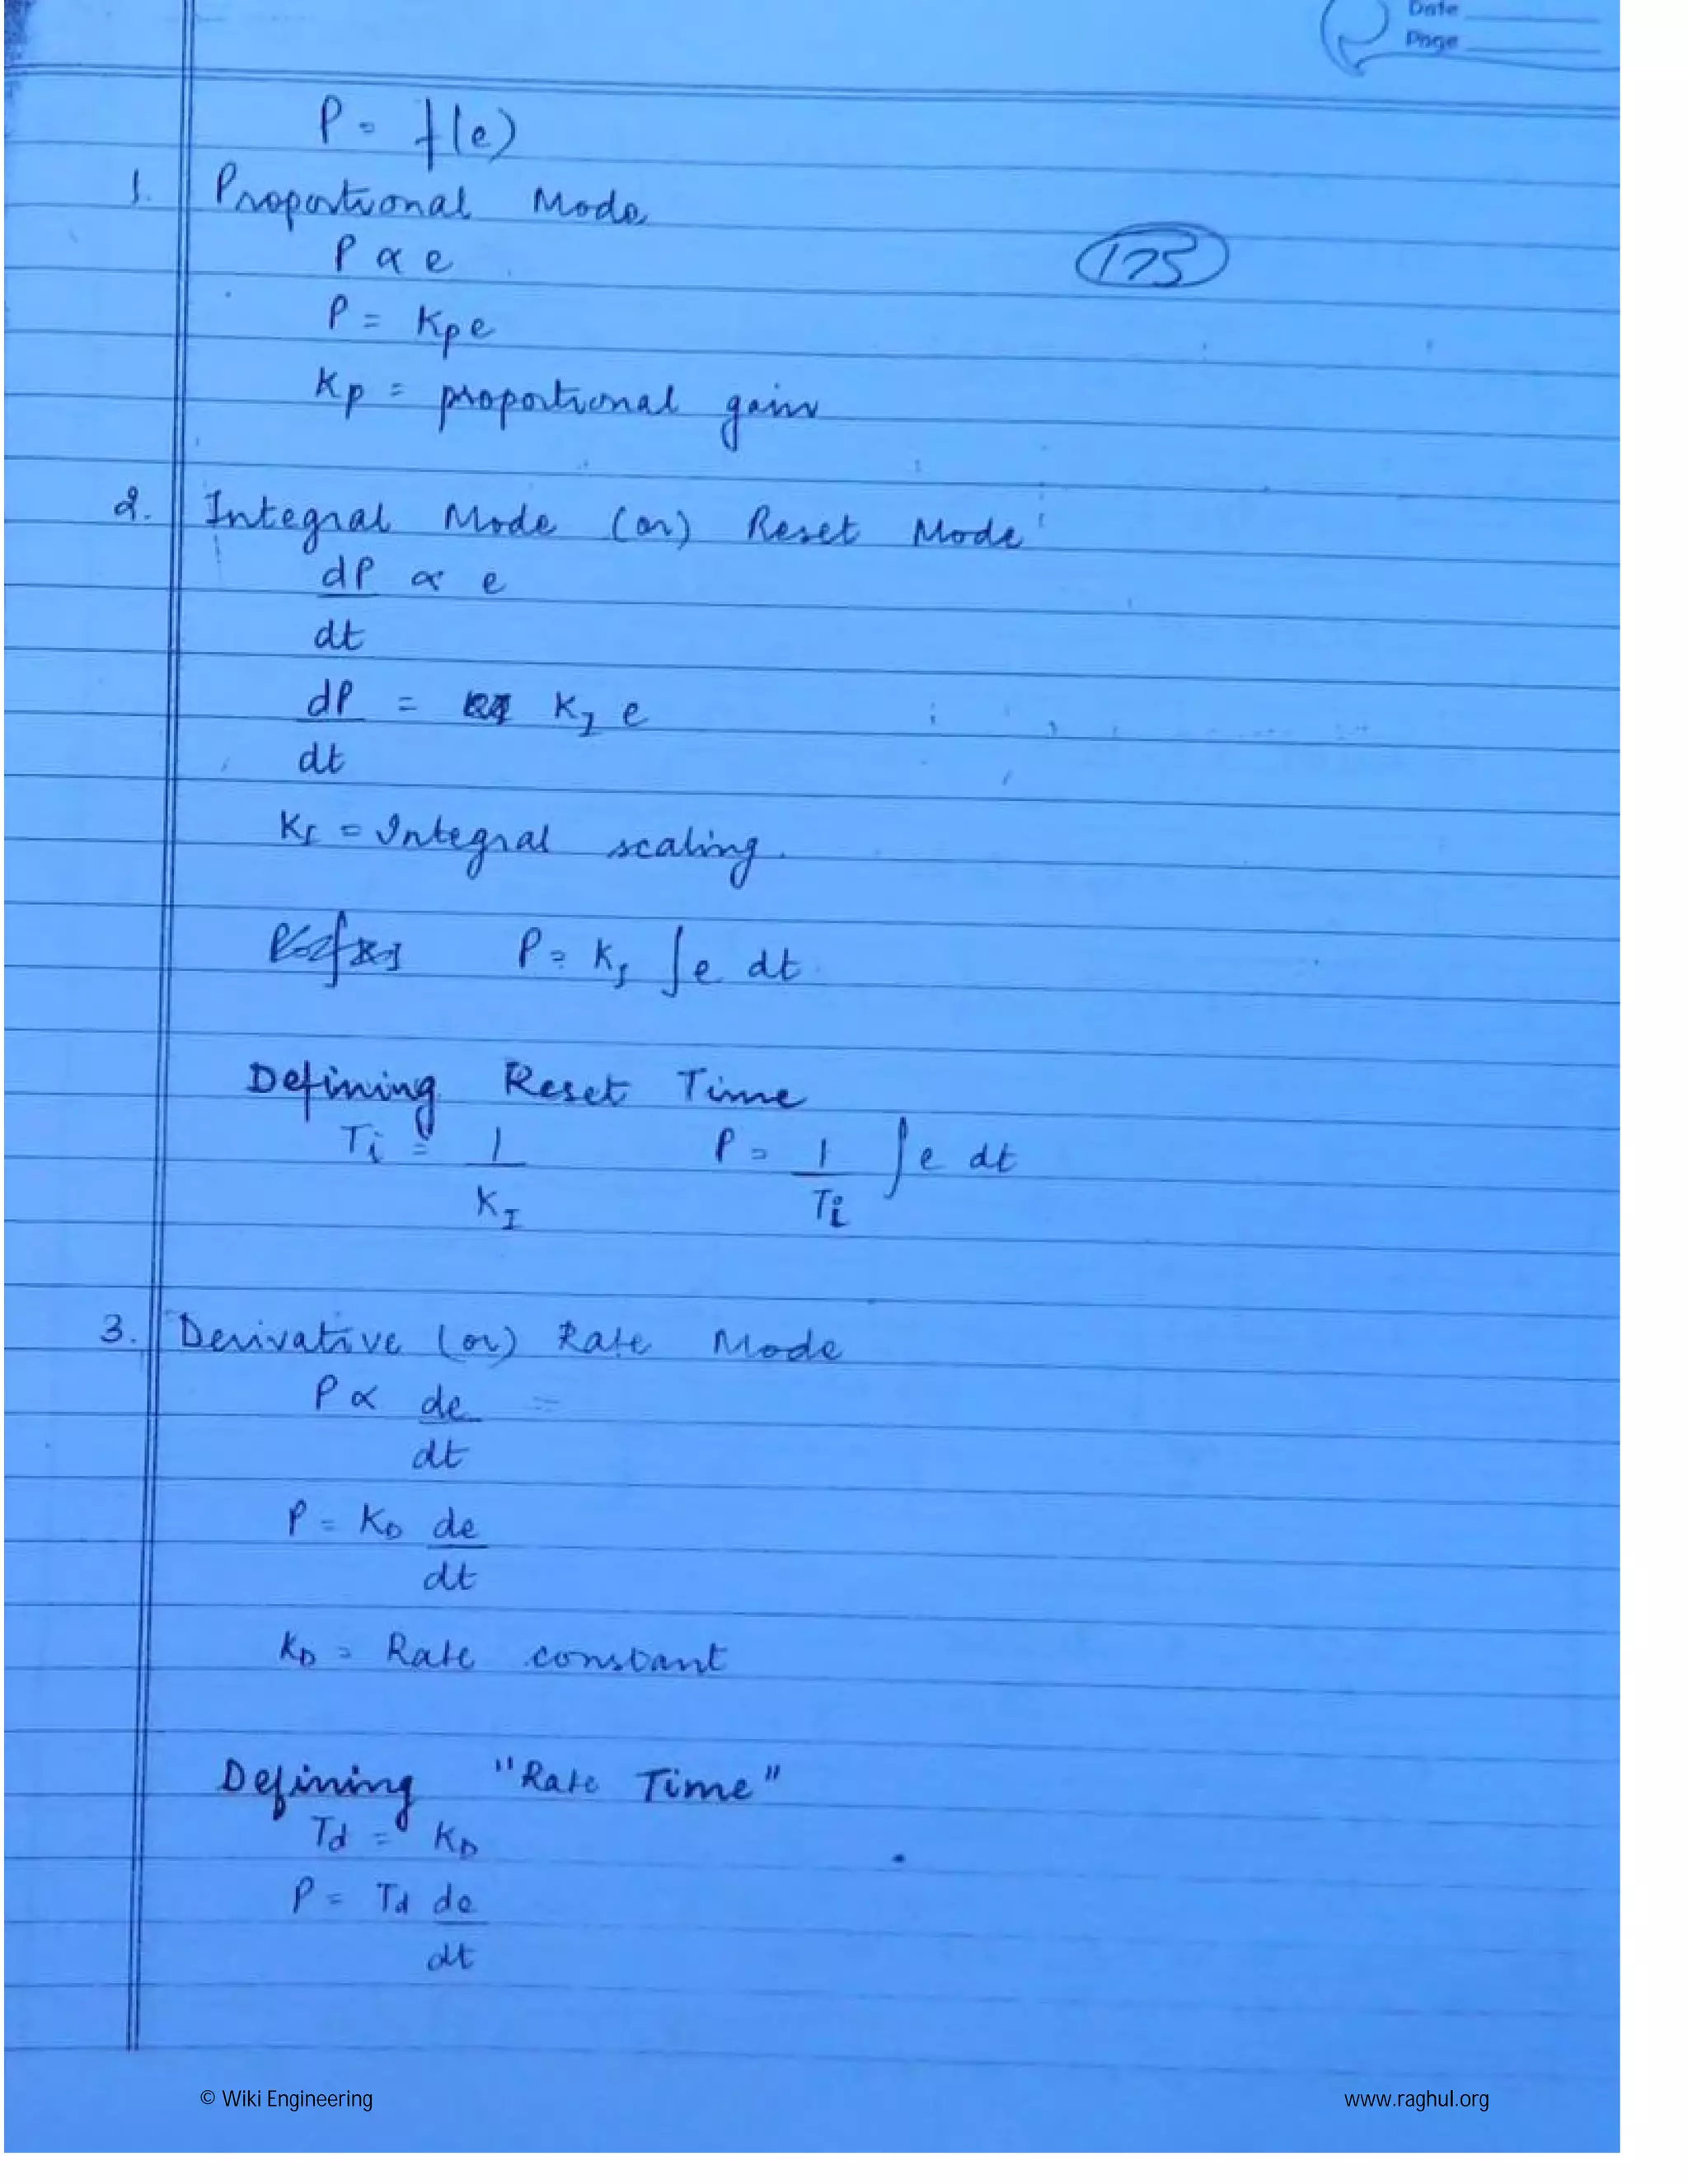 Date
Page
P = f(e)
1. Proportional Mode
175
P ∝ e
P = Kp e
Kp = proportional gain
2. Integral Mode (or) Reset Mode
dP ∝ e
dt
dP = K_I e
dt
K_I = Integral scaling.
P = K_I ∫ e dt
Defining Reset Time
Ti = 1 P = 1 ∫ e dt
K_I Ti
3. Derivative (or) Rate Mode
P ∝ de
dt
P = K_D de
dt
K_D = Rate constant
Defining "Rate Time"
Td = K_D
P = Td de
dt
© Wiki Engineering www.raghul.org